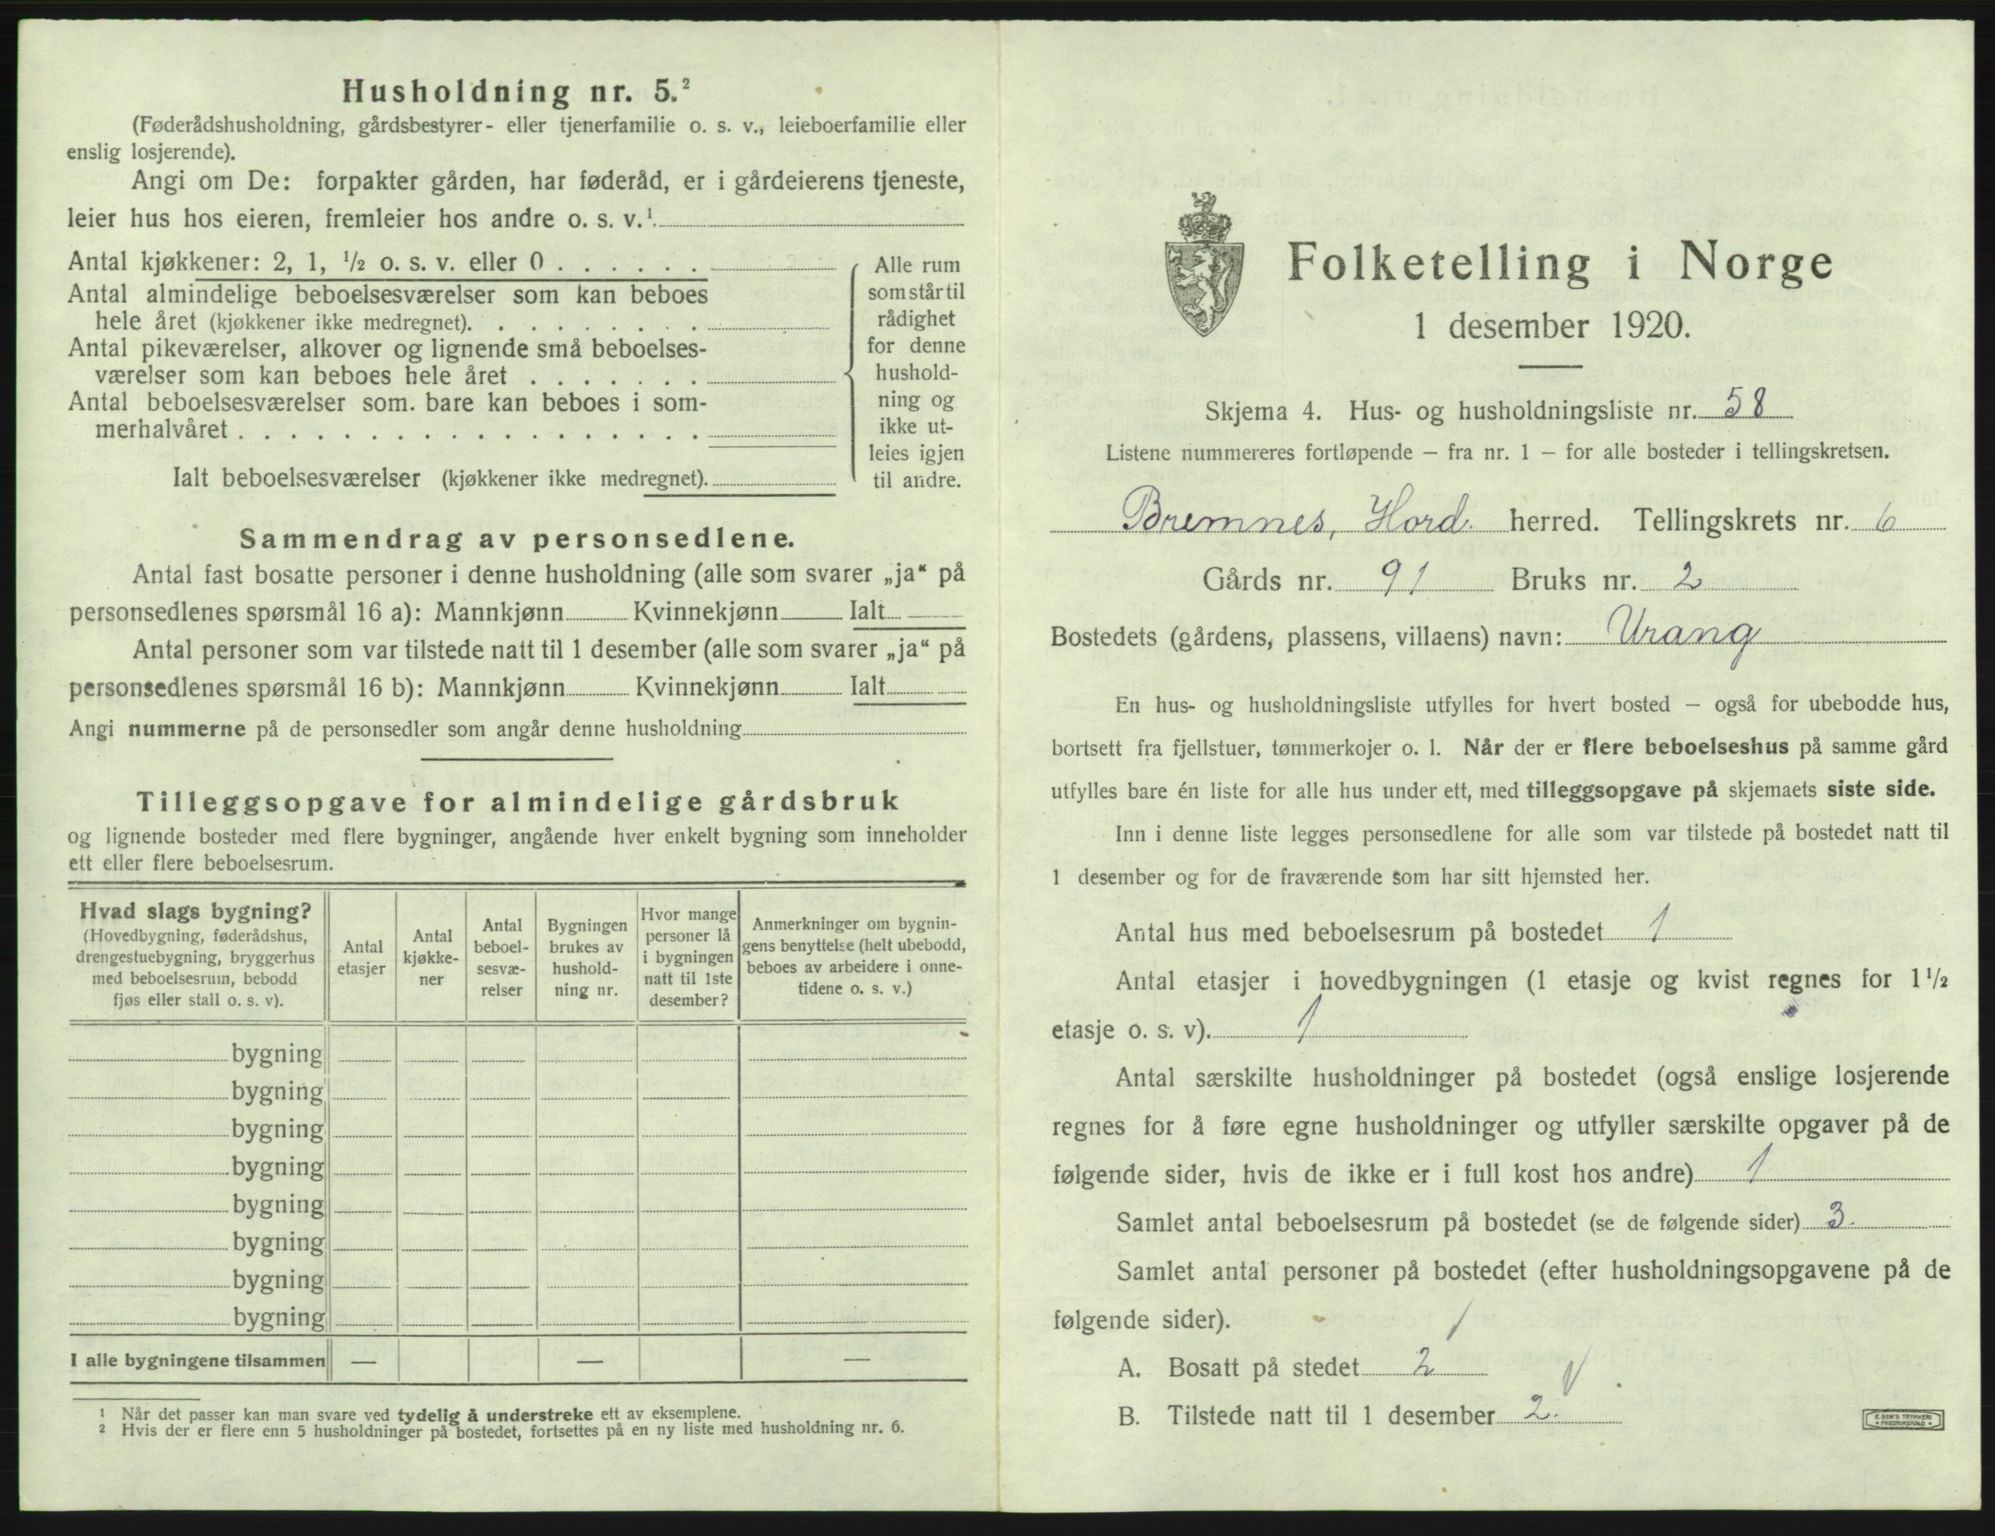 Husholdning nr. 5.²
(Føderådshusholdning, gårdsbestyrer- eller tjenerfamilie o. s. v., leieboerfamilie eller
enslig losjerende).
Angi om De: forpakter gården, har føderåd, er i gårdeierens tjeneste,
leier hus hos eieren, fremleier hos andre o. s. v.¹
Antal kjøkkener: 2, 1, ½ o. s. v. eller 0 . . . . . .
Antal almindelige beboelsesværelser som kan beboes
hele året (kjøkkener ikke medregnet). . . . . . . . .
Antal pikeværelser, alkover og lignende små beboelses-
værelser som kan beboes hele året . . . . . . .
Antal beboelsesværelser som. bare kan beboes i som-
merhalvåret . . . . . . . . . . . . . . . . . .
Ialt beboelsesværelser (kjøkkener ikke medregnet).
Alle rum
som står til
rådighet
for denne
hushold-
ning og
ikke ut-
leies igjen
til andre.
Sammendrag av personsedlene.
Antal fast bosatte personer i denne husholdning (alle som svarer „ja“ på
personsedlenes spørsmål 16 a): Mannkjønn Kvinnekjønn Ialt
Antal personer som var tilstede natt til 1 desember (alle som svarer „ja“ på
personsedlenes spørsmål 16 b): Mannkjønn Kvinnekjønn Ialt
Angi nummerne på de personsedler som angår denne husholdning
Tilleggsopgave for almindelige gårdsbruk
og lignende bosteder med flere bygninger, angående hver enkelt bygning som inneholder
ett eller flere beboelsesrum.
Hvad slags bygning?
(Hovedbygning, føderådshus,
drengestuebygning, bryggerhus
med beboelsesrum, bebodd
fjøs eller stall o. s. v).
Antal
etasjer
Antal
kjøkke-
ner
Antal
beboel-
sesvæ-
relser
Bygningen
brukes av
hushold-
ning nr.
Hvor mange
personer lå
i bygningen
natt til 1ste
desember?
Anmerkninger om bygnin-
gens benyttelse (helt ubebodd,
beboes av arbeidere i onne-
tidene o. s. v.)
bygning
bygning
bygning
bygning
bygning
bygning
bygning
bygning
I alle bygningene tilsammen — — —
¹ Når det passer kan man svare ved tydelig å understreke ett av eksemplene.
² Hvis der er flere enn 5 husholdninger på bostedet, fortsettes på en ny liste med husholdning nr. 6.
Folketelling i Norge
1 desember 1920.
Skjema 4. Hus- og husholdningsliste nr. 58
Listene nummereres fortløpende – fra nr. 1 – for alle bosteder i tellingskretsen.
Bremnes, Hord. herred. Tellingskrets nr. 6
Gårds nr. 91 Bruks nr. 2
Bostedets (gårdens, plassens, villaens) navn: Urang
En hus- og husholdningsliste utfylles for hvert bosted – også for ubebodde hus,
bortsett fra fjellstuer, tømmerkojer o. l. Når der er flere beboelseshus på samme gård
utfylles bare én liste for alle hus under ett, med tilleggsopgave på skjemaets siste side.
Inn i denne liste legges personsedlene for alle som var tilstede på bostedet natt til
1 desember og for de fraværende som har sitt hjemsted her.
Antal hus med beboelsesrum på bostedet 1
Antal etasjer i hovedbygningen (1 etasje og kvist regnes for 1½
etasje o. s. v). 1
Antal særskilte husholdninger på bostedet (også enslige losjerende
regnes for å føre egne husholdninger og utfyller særskilte opgaver på de
følgende sider, hvis de ikke er i full kost hos andre) 1
Samlet antal beboelsesrum på bostedet (se de følgende sider) 3.
Samlet antal personer på bostedet (efter husholdningsopgavene på de
følgende sider).
A. Bosatt på stedet 2
B. Tilstede natt til 1 desember 2.
E. SEM'S TRYKKERI
FREDRIKSHALD